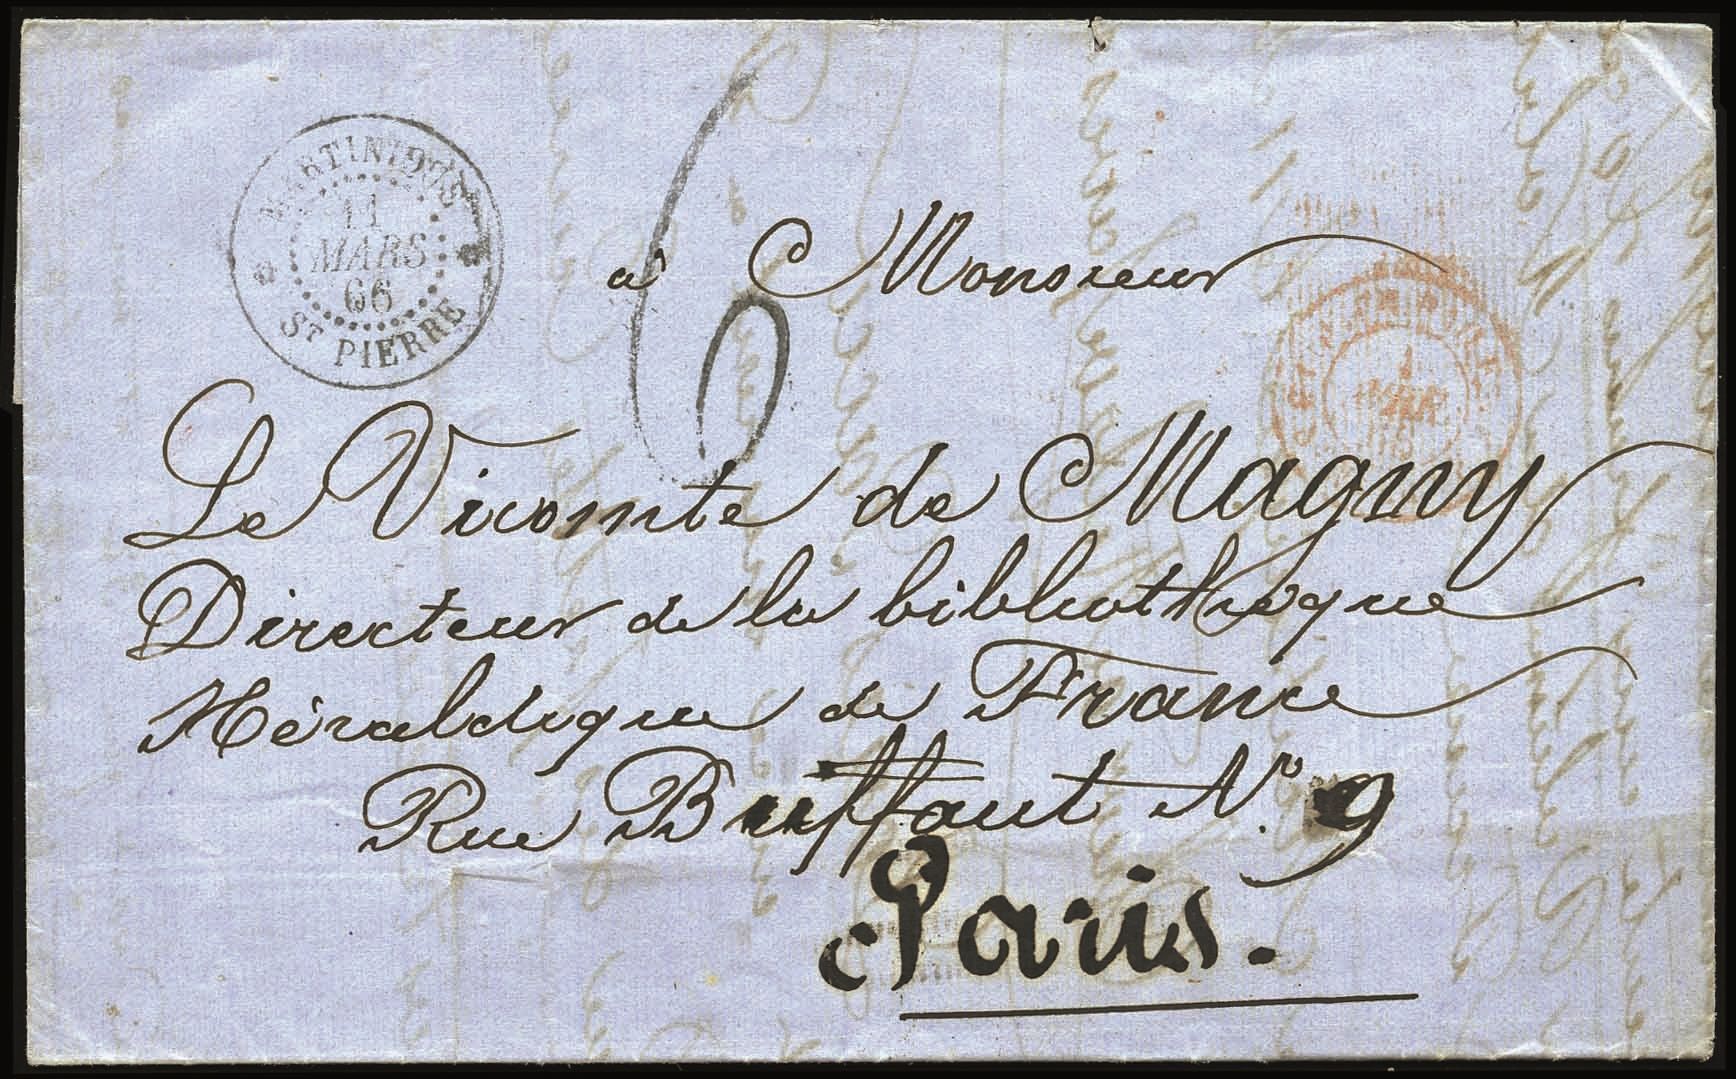 MARTINIQUE
11
MARS
66
ST PIERRE
6
à Monsieur
Le Vicomte de Magny
Directeur de la bibliothèque
Héraldique de France
Rue Buffaut No. 9
Paris.